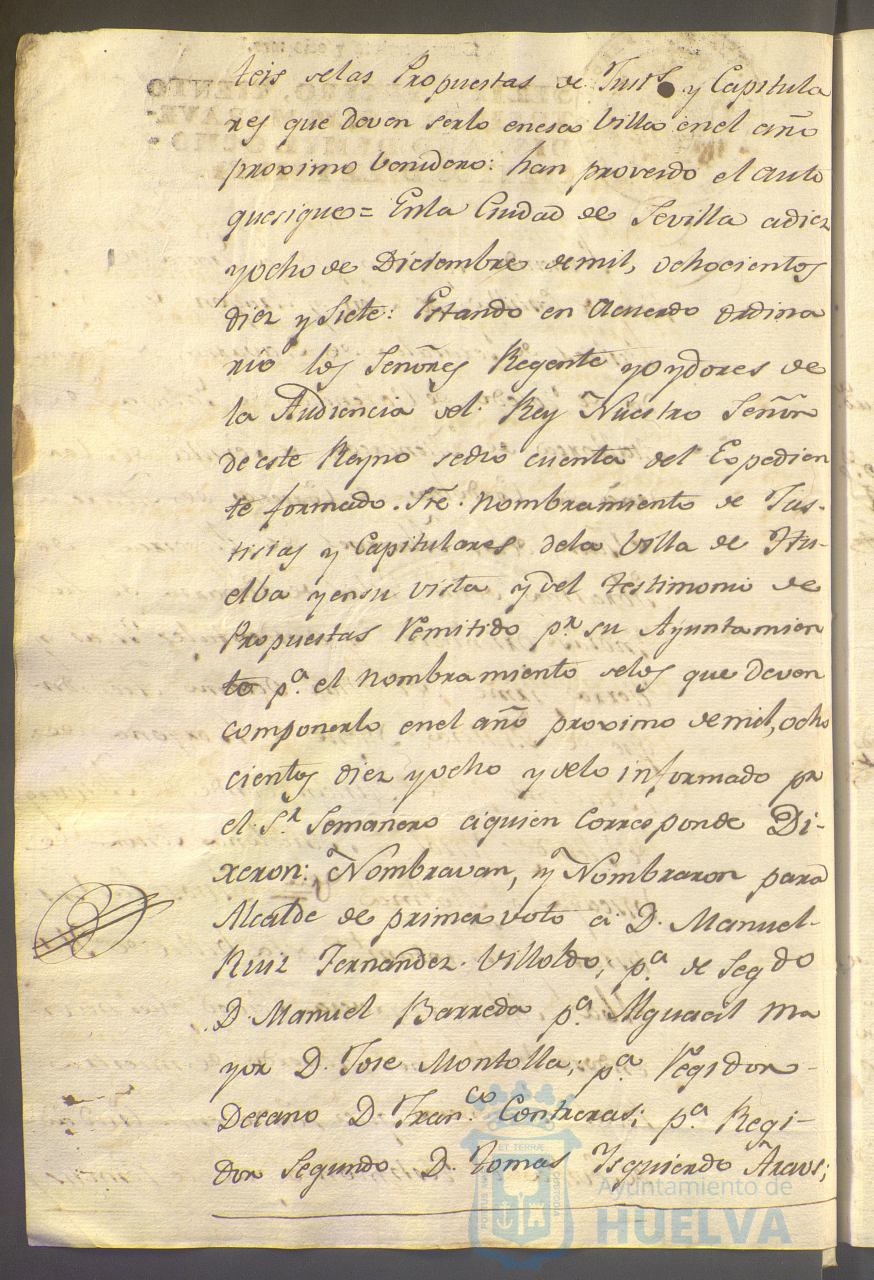 teis delas Propuestas de Justs y Capitula
res que deven serlo enesa Villa enel año
proximo benidero: han proveido el auto
quesigue= Enla Ciudad de Sevilla adiez
yocho de Diciembre demil, ochocientos
diez y siete: Estando en Acuerdo Ordina
rio los Señores Regente yoydores de
la Audiencia del Rey Nuestro Señor
de este Reyno sedio cuenta del Expedien
te formado Sre. nombramiento de Jus-
ticias y Capitulares dela Villa de Hu-
elba yensu vista y del testimonio de
Propuestas Remitido pr. su Ayuntamien
to pa. el nombramiento delos que deven
componerlo enel año proximo demil, ocho
cientos diez yocho y delo informado pr
el Sr. Semanero aquien Corresponde Di-
xeron: Nombravan, y Nombraron para
Alcalde de primer voto a D. Manuel
Ruiz Fernandez Villoldo; pa. de Segdo
D. Manuel Barreda pa. Alguacil ma
yor D. Jose Montolla; pa. Regidor
Decano D. Franco. Contreras; pa. Regi-
dor Segundo D. Tomas Izquierdo
Ayuntamiento de
HUELVA